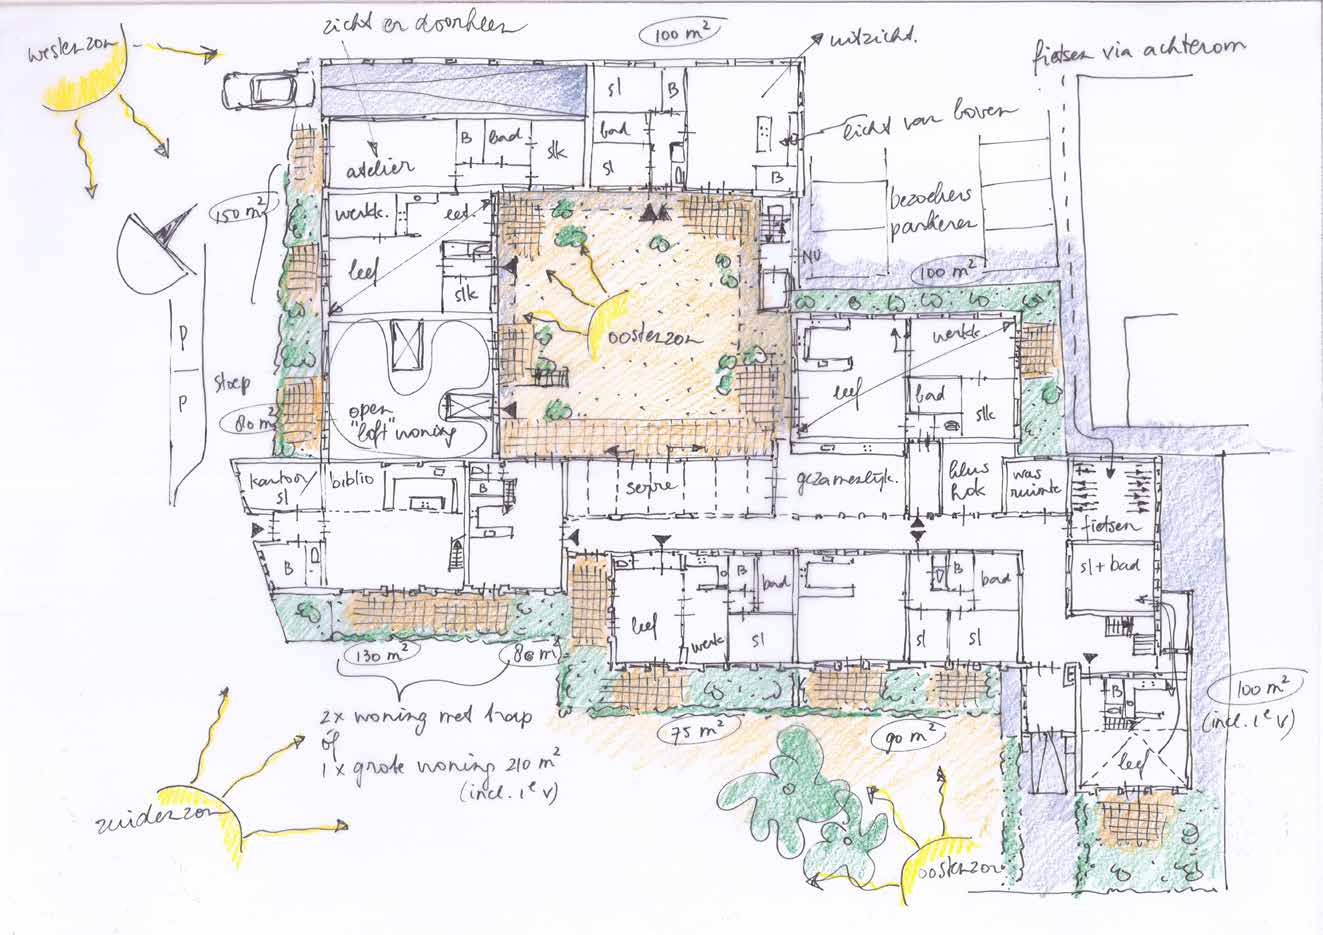 zicht er doorheen
100 m²
uitzicht.
fietsen via achterom
westerzon
sl
B
licht van boven
atelier
B
bad
slk
bad
sl
B
150 m²
werkk.
eet.
bezoekers
parkeren
leef
slk
NU
100 m²
P
P
stoep
80 m²
oosterzon
open
"loft" woning
werkk
leef
bad
slk
kantoor/
sl
biblio
B
serre
gezamenlijk.
klus
hok
was
ruimte
fietsen
B
leef
B
bad
werk
sl
B
bad
sl
sl
sl + bad
B
leef
130 m²
80 m²
75 m²
90 m²
100 m²
(incl. 1e v)
2x woning met trap
óf
1 x grote woning 210 m²
(incl. 1e v)
zuiderzon
oosterzon